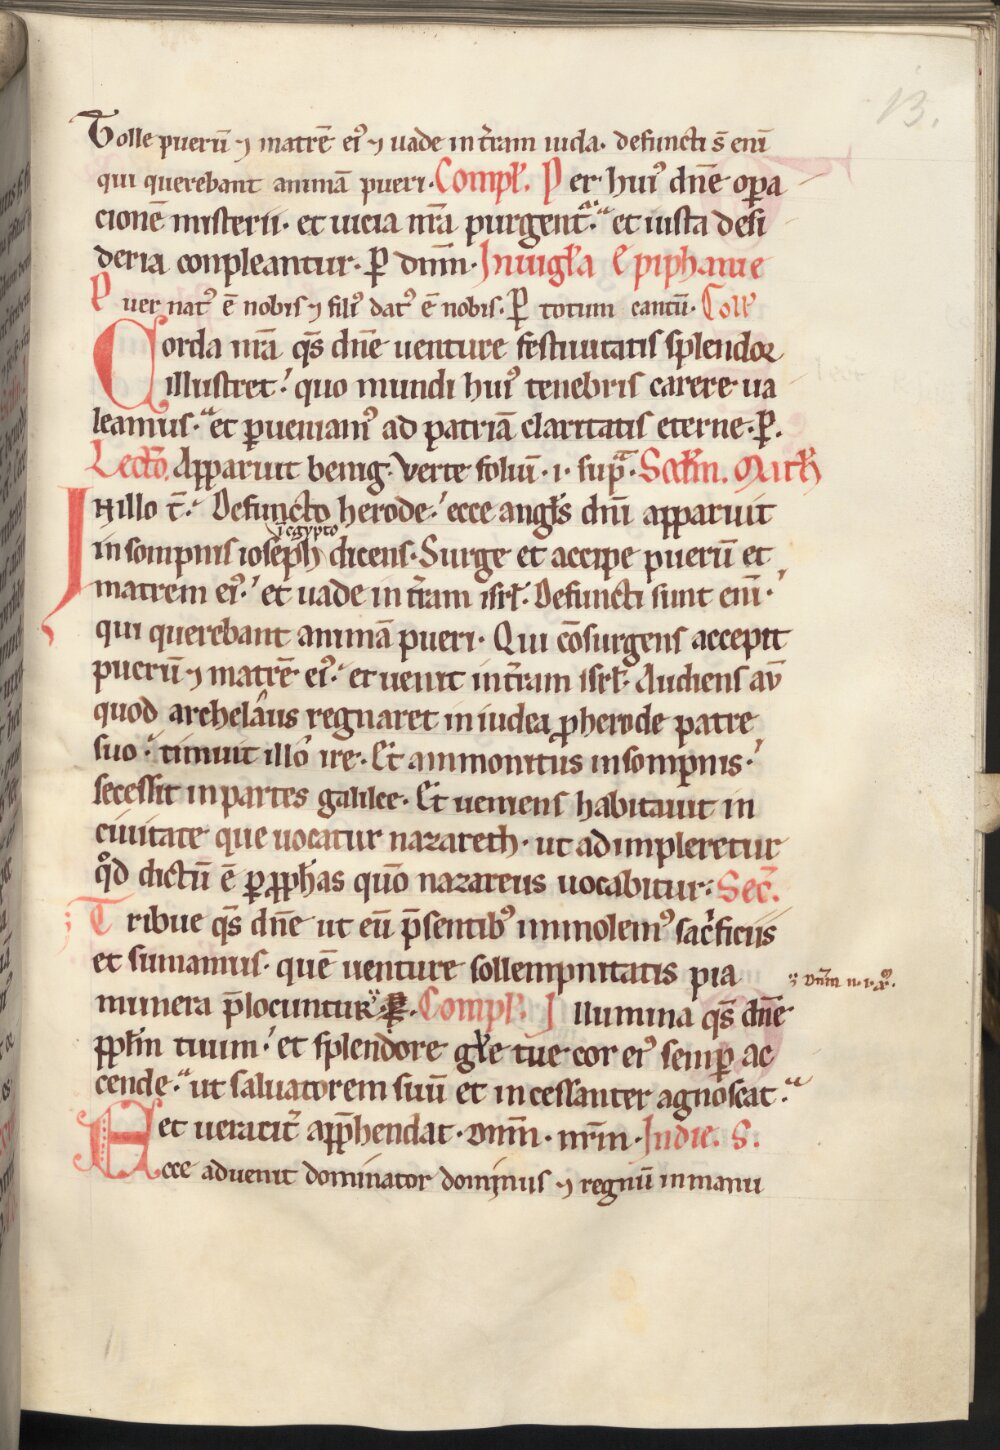 13.
Tolle puerū ⁊ matrē ei᾽ ⁊ uade in t̄ram iuda. defuncti s̄ eni̅
qui querebant animā pueri. Compl̄. Per hui᾽ dn̄e opera
cionē misterii. et uicia nr̄a purgent᾽. et iusta desi
deria conpleantur. P dnm̄. In uigl̄a Epiphanie
Puer nat᾽ ē nobis ⁊ fili᾽ dat᾽ ē nobis. P totum cantū. Coll̄
Corda nr̄a qs̄ dn̄e uenture festiuitatis splendor
illustret. quo mundi hui᾽ tenebris carere ua
leamus. et pueniam᾽ ad patriā claritatis eterne. P.
Lectō. Apparuit benig. Verte foliū .i. supᵃ. Scd̄m. Math̄
IN illo t̄. Defuncto herode. ecce angl̄s dn̄i apparuit
in sompnis ioseph dicens. Surge et accipe puerū et
ī egypto
matrem ei᾽. et uade in t̄ram isrl̄. Defuncti sunt eni̅.
qui querebant animā pueri. Qui cōsurgens accepit
puerū ⁊ matrē ei᾽. et uenit in t̄ram isrl̄. Audiens au̅
quod archelaus regnaret in iudea pro herode patre
suo. timuit illo ire. Et ammonitus in sompnis.
secessit in partes galilee. Et ueniens habitauit in
ciuitate que uocatur nazareth. ut adimpleretur
qͦd dictū ē p pph̄as quō nazareus uocabitur. Sec̄.
Tribue qs̄ dn̄e ut eū p̄sentib᾽ immolem᾽ sac̄ficiis
et sumamus. quē uenture sollempnitatis pia
munera p̄locuntur. P. Compl̄. Illumina qs̄ dn̄e
;; dnm̄ n.i.x͞.
ppl̄m tuum. et splendore gl̄e tue cor ei᾽ semp ac
cende. ut saluatorem suū et incessanter agnoscat.
et ueracit̄ app̄hendat. dnm̄. nr̄m. In die. S.
Ecce aduenit dominator dominus ⁊ regnū in manu